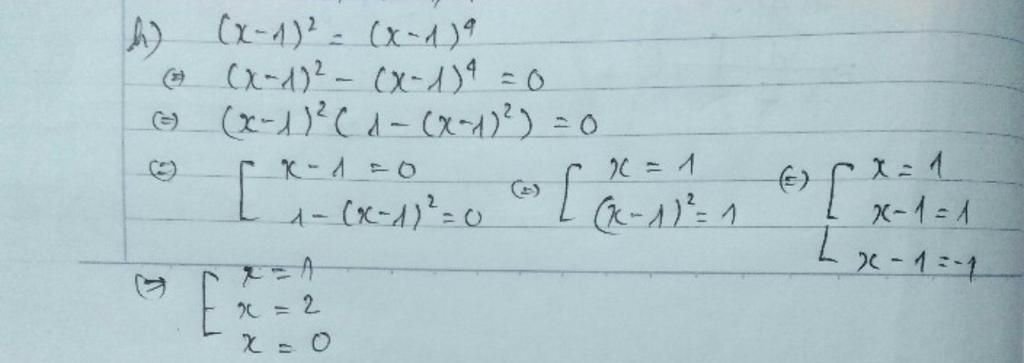 h) (x-1)² = (x-1)⁴
⇔ (x-1)² - (x-1)⁴ = 0
⇔ (x-1)² ( 1 - (x-1)²) = 0
⇔ [ x - 1 = 0 ⇔ [ x = 1 ⇔ [ x = 1
1 - (x-1)² = 0 (x-1)² = 1 x - 1 = 1
x - 1 = -1
⇔ [ x = 1
x = 2
x = 0